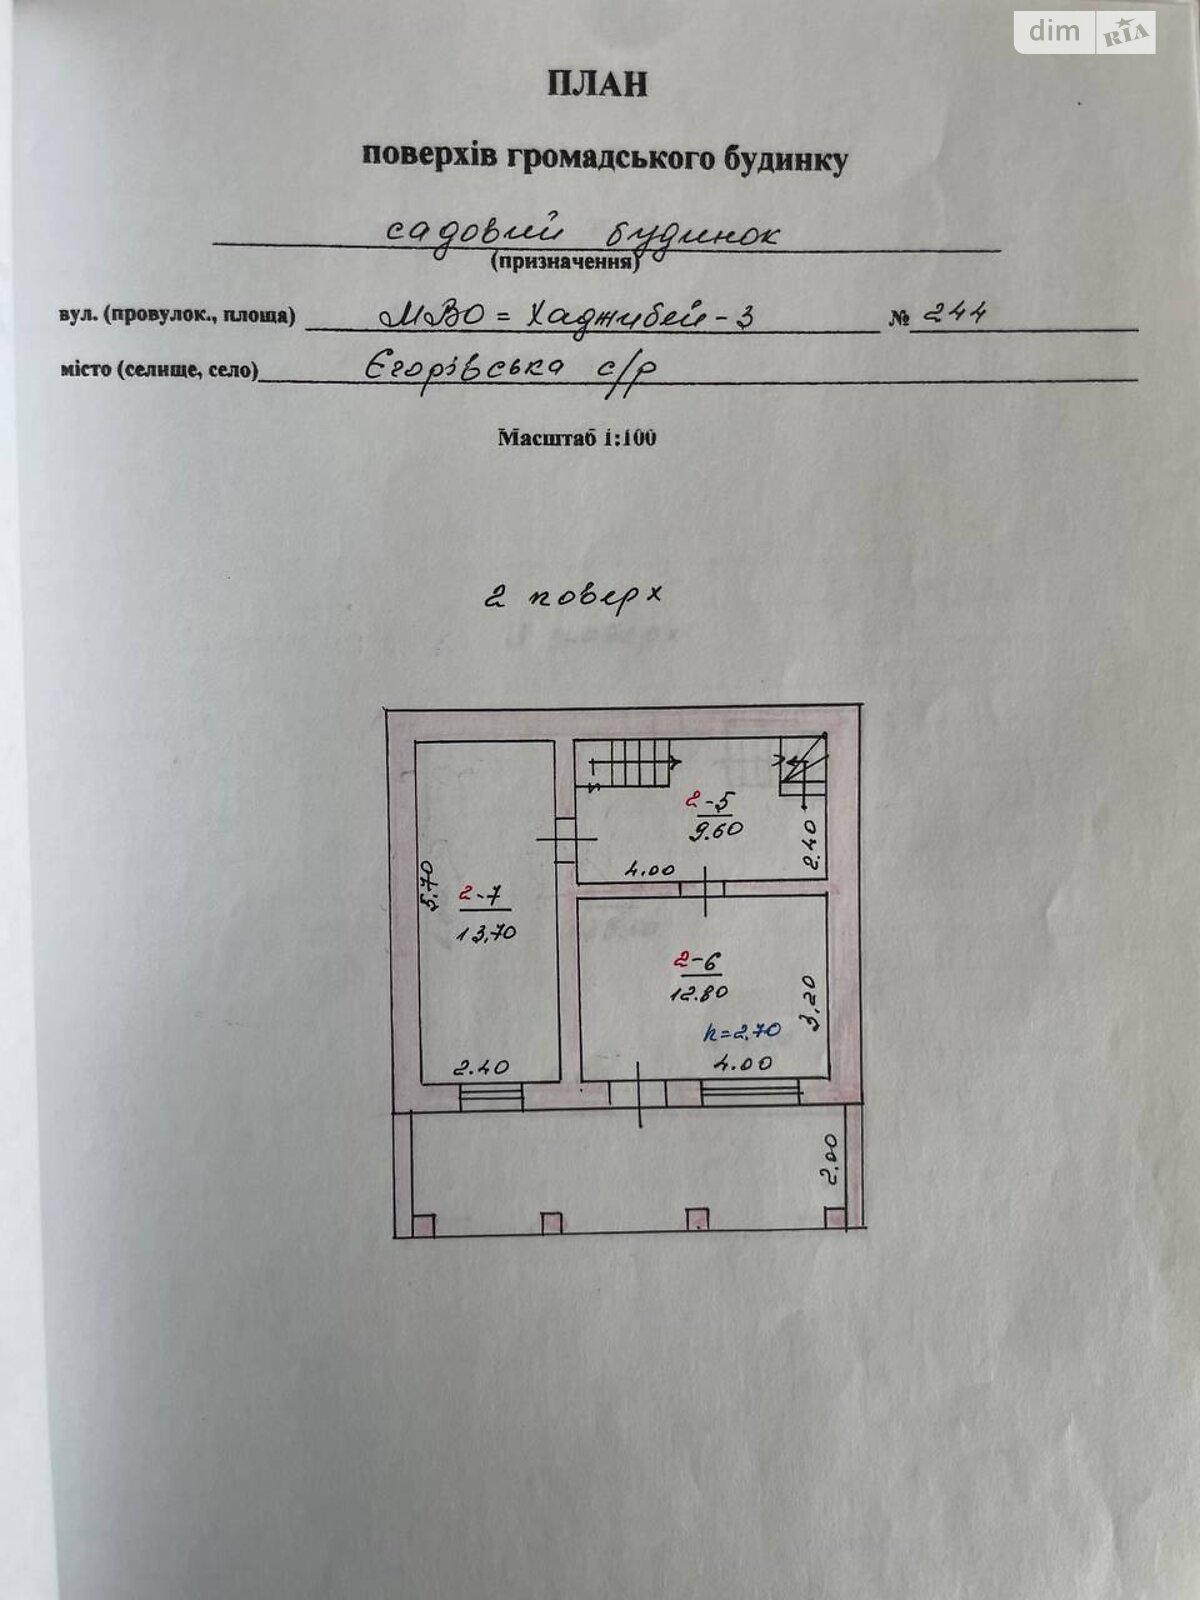 dim RIA
ПЛАН
поверхів громадського будинку
садовий будинок
(призначення)
вул. (провулок., площа) МВО = Хаджибей - 3 № 244
місто (селище, село) Єгорівська с/р
Масштаб 1:100
2 поверх
2-5
9.60
2.40
4.00
5.70
2-7
13,70
2-6
12.80
3,20
h=2,70
2.40
4.00
2,00